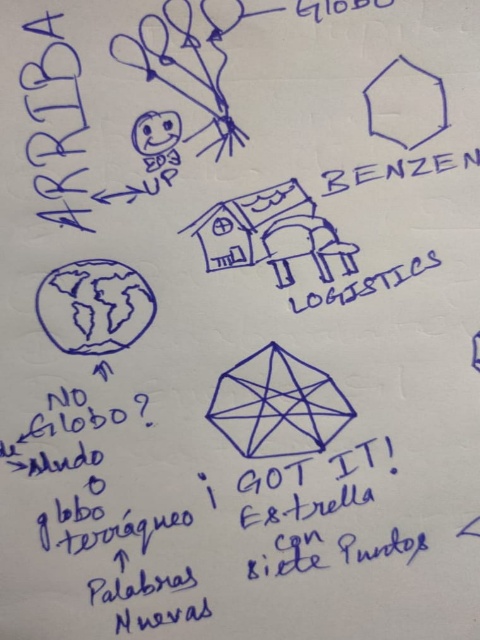 GLOBO
ARRIBA
UP
BENZEN
LOGISTICS
NO
GLOBO?
de
Mudo
O
globo
terráqueo
Palabras
Nuevas
¡GOT IT!
Estrella
con
siete Puntos